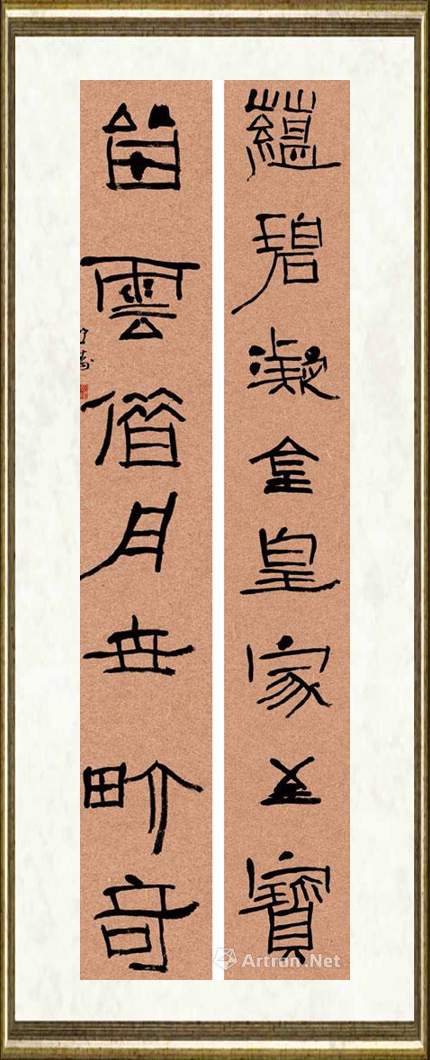 蘊碧凝金皇家五寶
留雲借月世界奇
Artron.Net